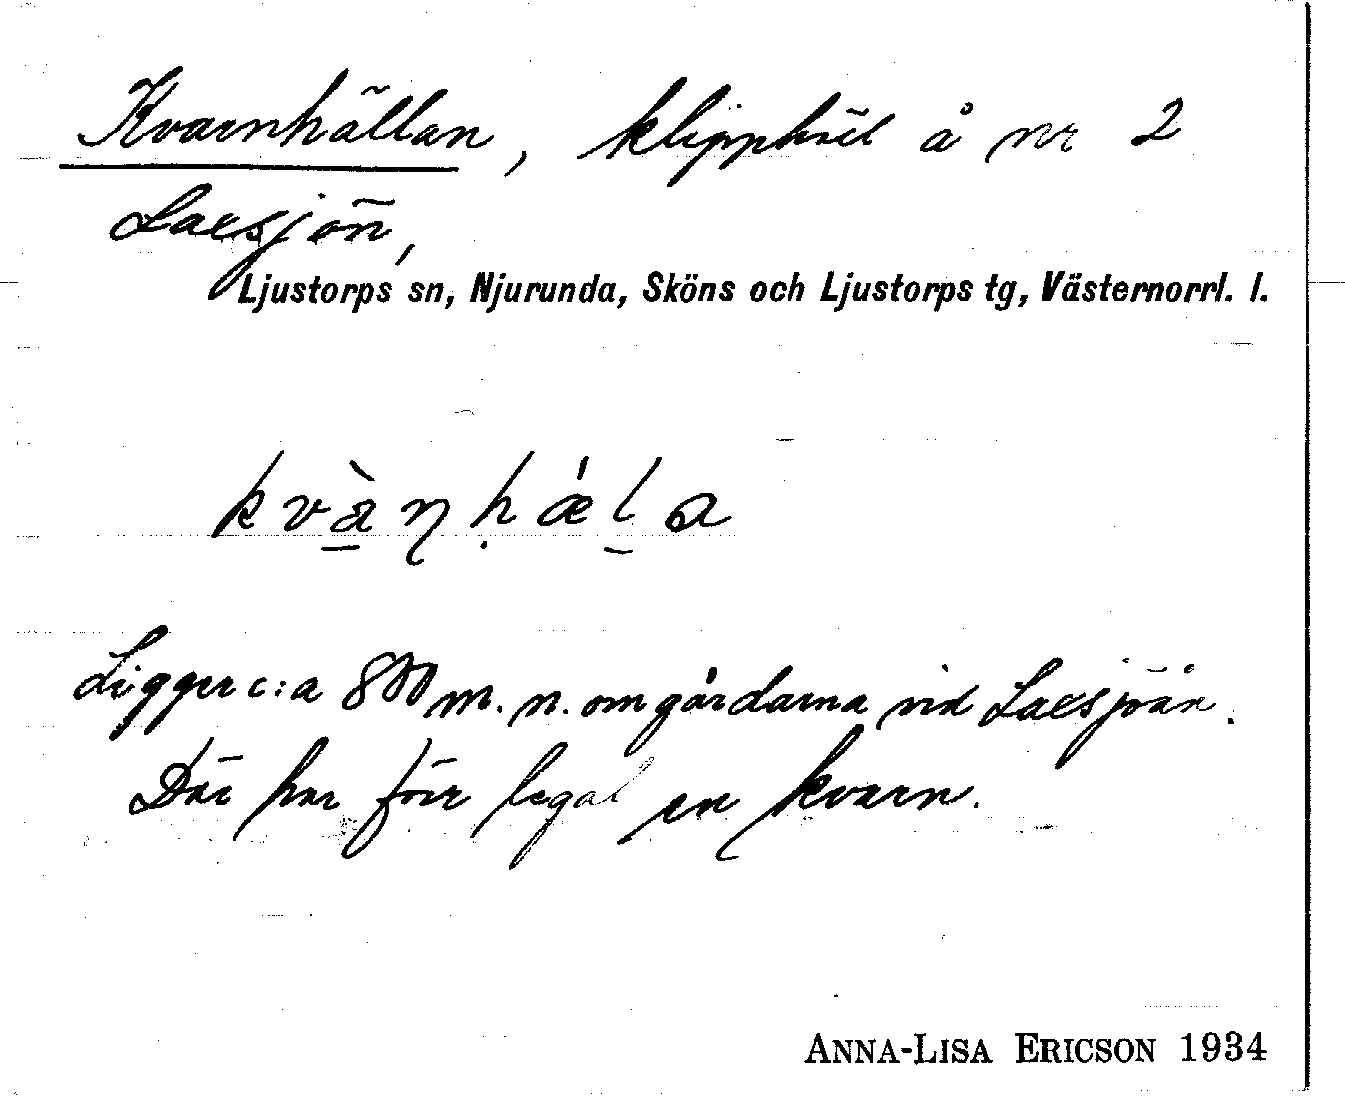 Kvarnhällan, klipphäll å nr 2
Laxsjön,
Ljustorps sn, Njurunda, Sköns och Ljustorps tg, Västernorrl. l.
kvànhǽla
Ligger c:a 800 m. n. om gårdarna vid Laxsjöån.
Där har förr legat en kvarn.
ANNA-LISA ERICSON 1934